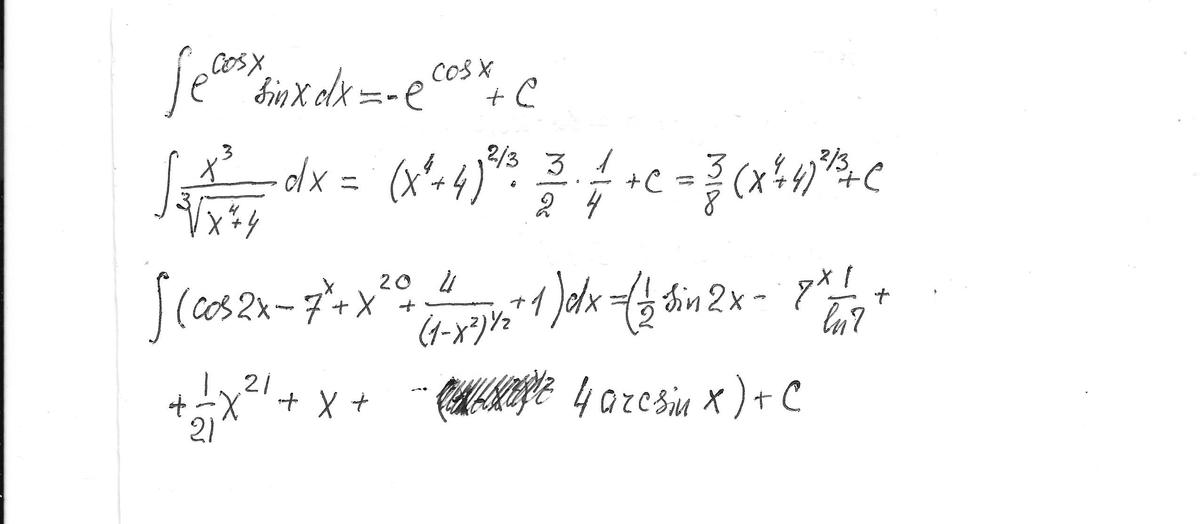 ∫ e^{cos x} sin x dx = -e^{cos x} + C
∫ x^3 / ∛(x^4+4) dx = (x^4+4)^{2/3} · 3/2 · 1/4 + C = 3/8 (x^4+4)^{2/3} + C
∫ (cos 2x - 7^x + x^{20} + 4/(1-x^2)^{1/2} + 1) dx = (1/2 sin 2x - 7^x 1/ln 7 +
+ 1/21 x^{21} + x + 4 arcsin x) + C